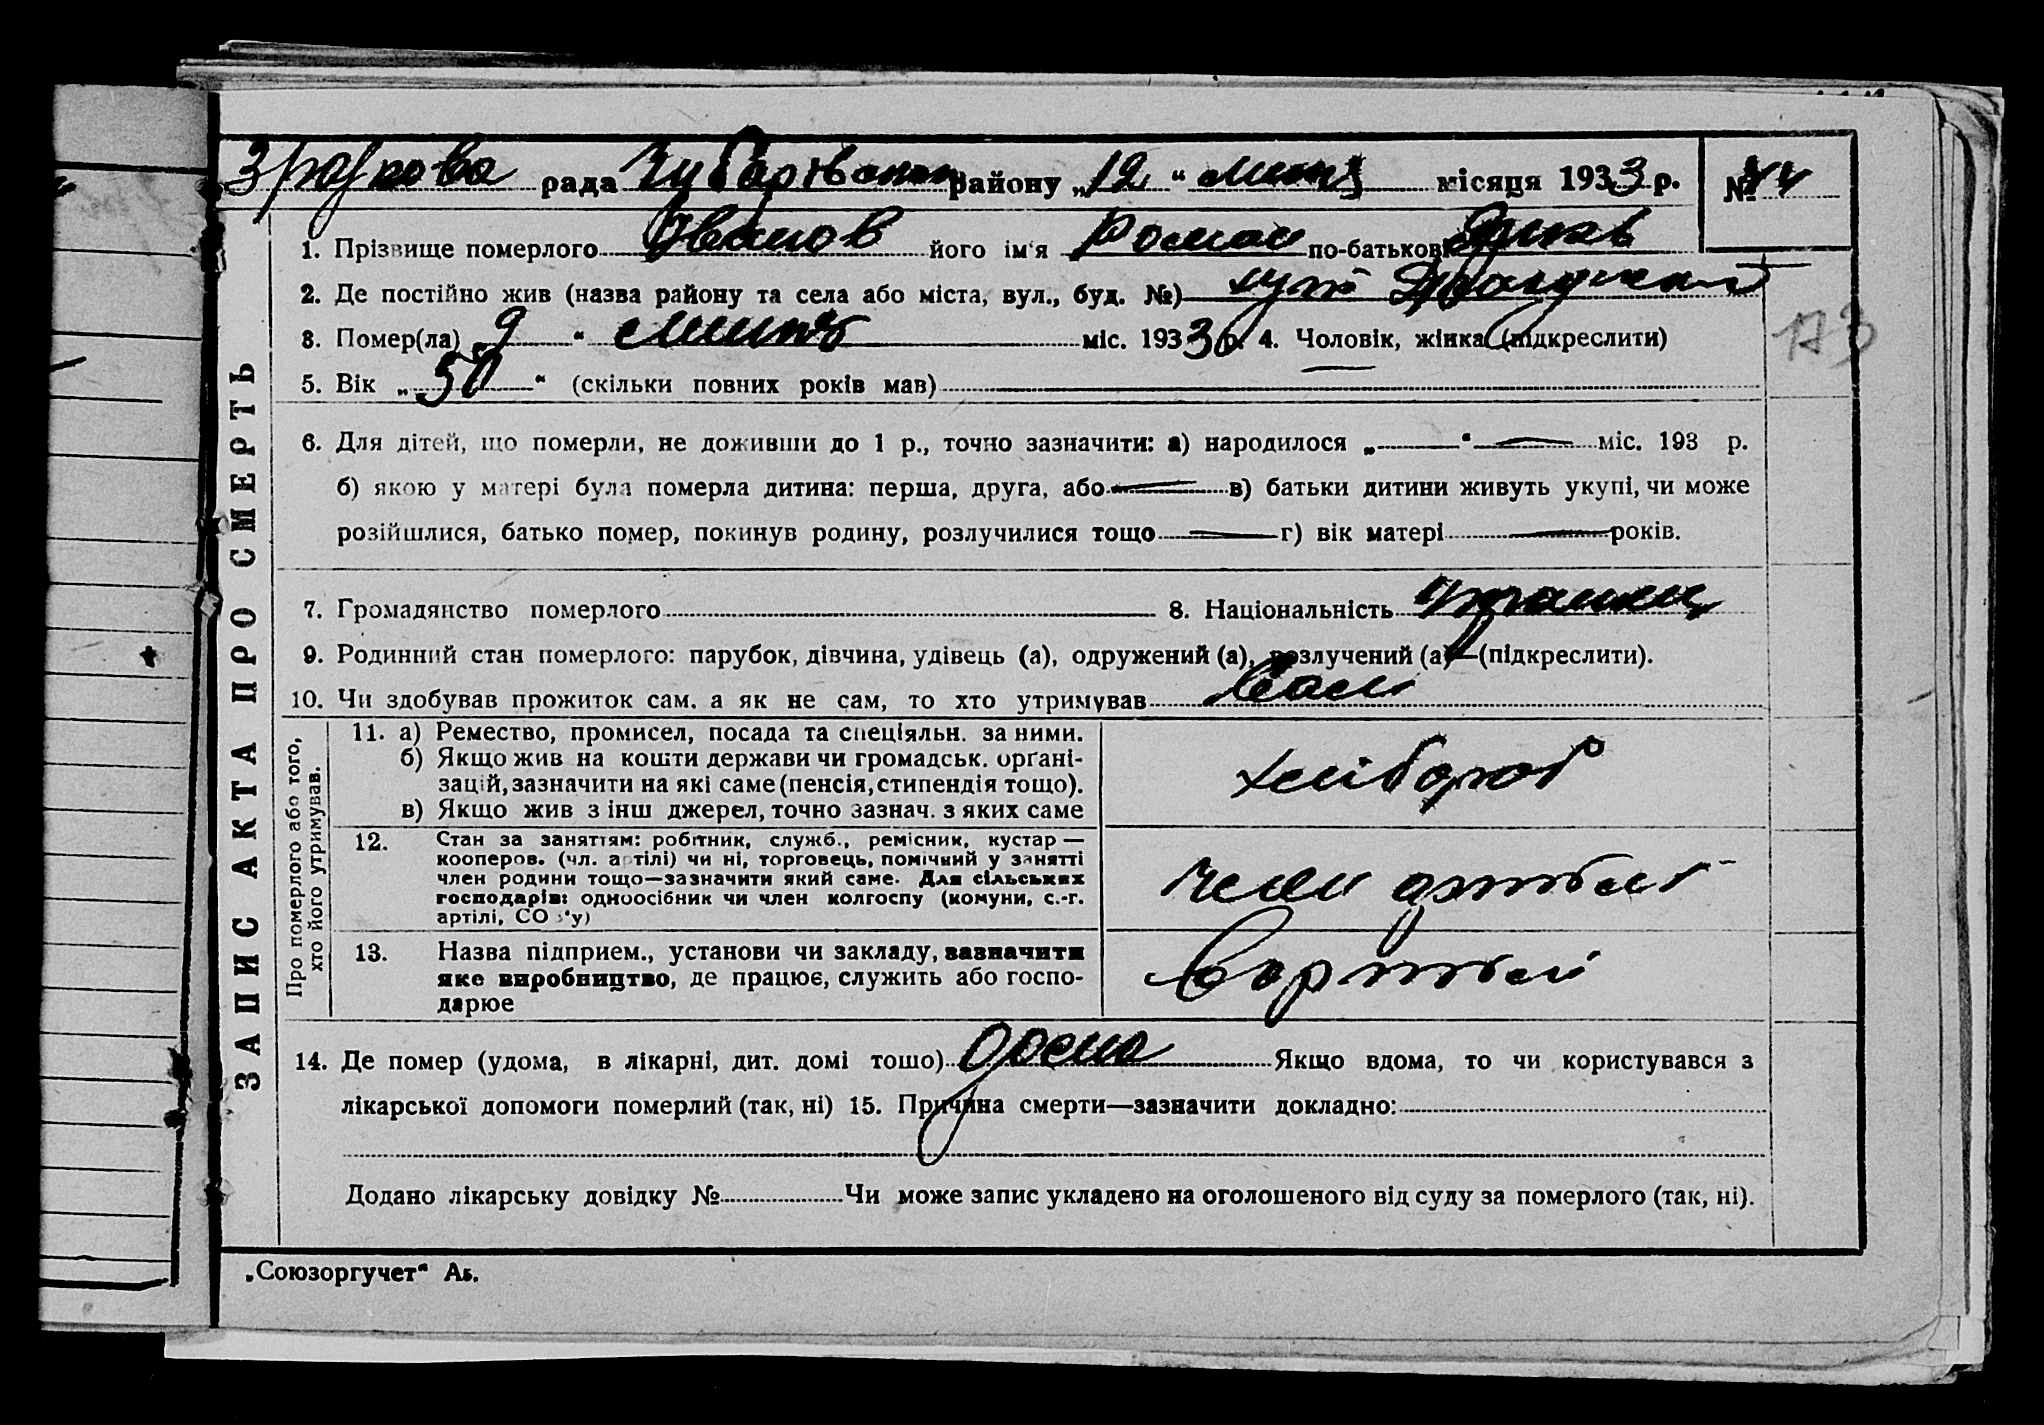 рада району „12“ місяця 1933 р. №
1. Прізвище померлого Иванов його ім'я Роман по-батькові
2. Де постійно жив (назва району та села або міста, вул., буд. №) хут
3. Помер(ла) „9“ міс. 1933 р. 4. Чоловік, жінка (підкреслити)
173
5. Вік „50“ (скільки повних років мав)
6. Для дітей, що померли, не доживши до 1 р., точно зазначити: а) народилося „—“ — міс. 193 р.
б) якою у матері була померла дитина: перша, друга, або — в) батьки дитини живуть укупі, чи може
розійшлися, батько помер, покинув родину, розлучилися тощо — г) вік матері — років.
7. Громадянство померлого 8. Національність
9. Родинний стан померлого: парубок, дівчина, удівець (а), одружений (а), розлучений (а)—(підкреслити).
10. Чи здобував прожиток сам, а як не сам, то хто утримував Сам
ЗАПИС АКТА ПРО СМЕРТЬ
Про померлого або того,
хто його утримував.
11. а) Ремество, промисел, посада та спеціяльн. за ними.
б) Якщо жив на кошти держави чи громадськ. орґані-
зацій, зазначити на які саме (пенсія, стипендія тощо).
в) Якщо жив з інш джерел, точно зазнач. з яких саме
хлібороб
12. Стан за заняттям: робітник, служб., ремісник, кустар —
кооперов. (чл. артілі) чи ні, торговець, помічний у занятті
член родини тощо—зазначити який саме. Для сільських
господарів: одноосібник чи член колгоспу (комуни, с.-г.
артілі, СО з'у)
член артілі
13. Назва підприєм., установи чи закладу, зазначити
яке виробництво, де працює, служить або госпо-
дарює
В артілі
14. Де помер (удома, в лікарні, дит. домі тощо) дома Якщо вдома, то чи користувався з
лікарської допомоги померлий (так, ні) 15. Причина смерти—зазначити докладно:
Додано лікарську довідку № Чи може запис укладено на оголошеного від суду за померлого (так, ні).
„Союзоргучет“ Аб.